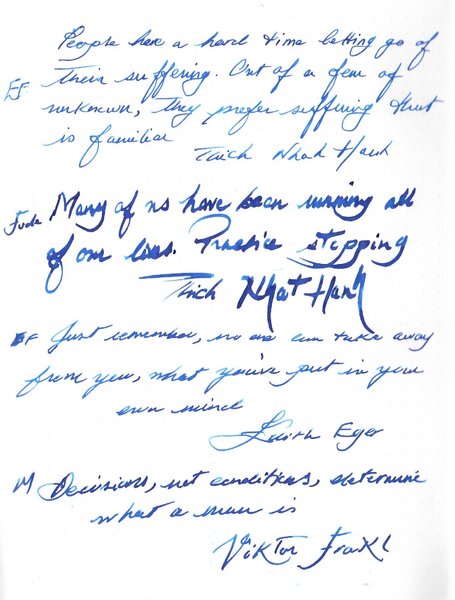 People have a hard time letting go of
EF their suffering. Out of a fear of
unknown, they prefer suffering that
is familiar
Thich Nhah Hanh
Fude Many of us have been running all
of our lives. Practice stopping
Thich Nhat Hanh
EF Just remember, no one can take away
from you, what you've put in your
own mind
Edith Eger
M Decisions, not conditions, determine
what a man is
Viktor Frakl